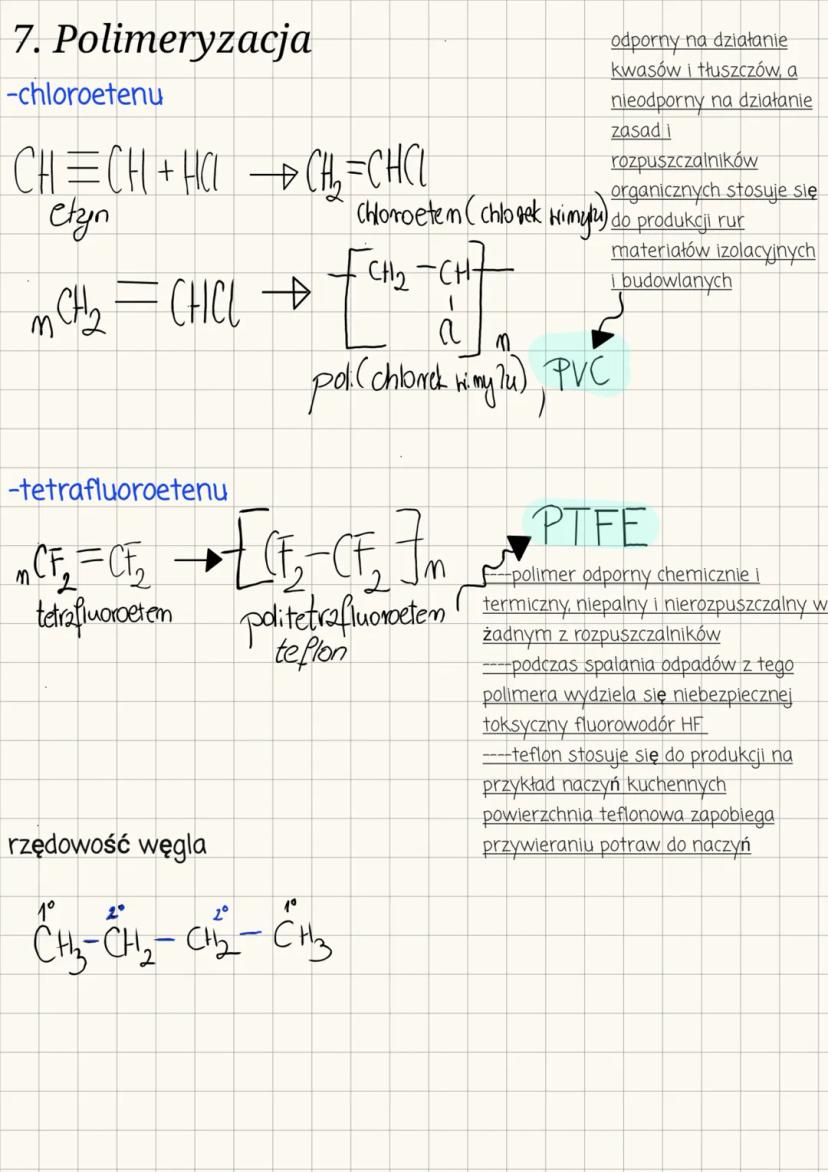 7. Polimeryzacja
-chloroetenu
CH≡CH + HCl → CH₂=CHCl
etyn
chloroeten (chlorek winylu)
odporny na działanie
kwasów i tłuszczów, a
nieodporny na działanie
zasad i
rozpuszczalników
organicznych stosuje się
do produkcji rur
materiałów izolacyjnych
i budowlanych
nCH₂=CHCl → [CH₂-CH]n
Cl
poli(chlorek winylu), PVC
-tetrafluoroetenu
nCF₂=CF₂ → [CF₂-CF₂]n
tetrafluoroeten
politetrafluoroeten
teflon
PTFE
----polimer odporny chemicznie i
termiczny, niepalny i nierozpuszczalny w
żadnym z rozpuszczalników
----podczas spalania odpadów z tego
polimera wydziela się niebezpiecznej
toksyczny fluorowodór HF
----teflon stosuje się do produkcji na
przykład naczyń kuchennych
powierzchnia teflonowa zapobiega
przywieraniu potraw do naczyń
rzędowość węgla
1° 2° 2° 1°
CH₃-CH₂-CH₂-CH₃